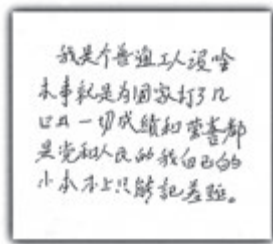 我是个普通工人没啥
本事就是为国家打了几
口井一切成績和荣誉都
是党和人民的我自己的
小本本上只能記差距。